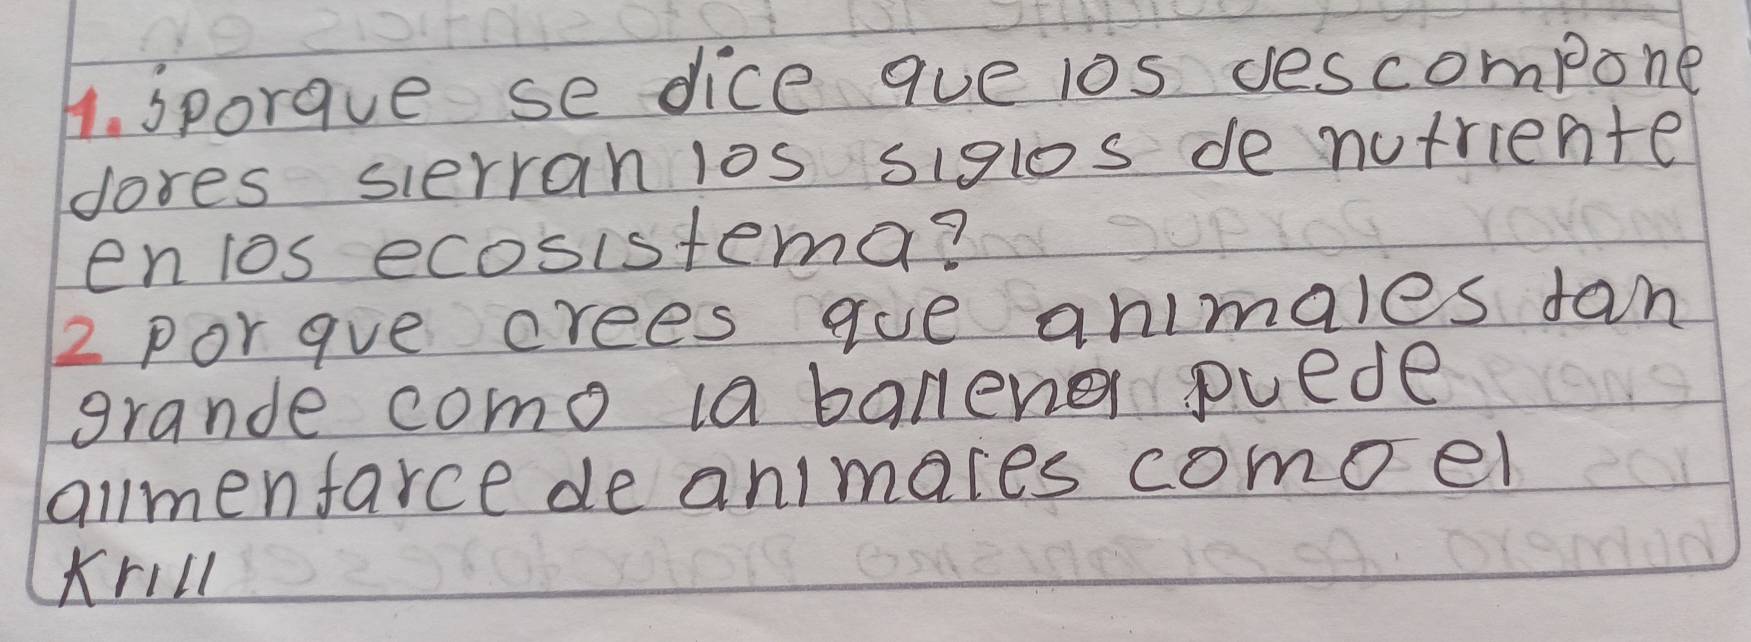 1. ¿porque se dice que los descompone
dores sierran los siglos de nutriente
en los ecosistema?
2 por que crees que animales tan
grande como la ballena puede
alimentarce de animales como el
Krill